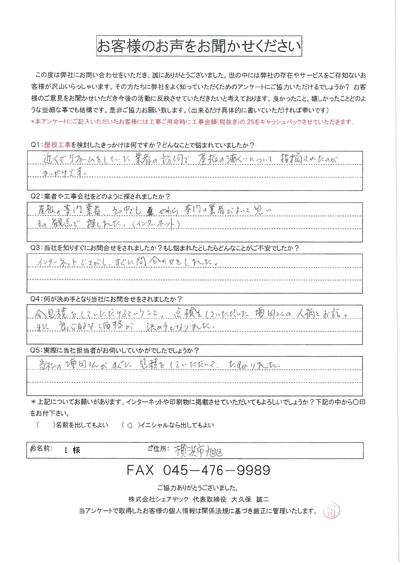 お客様のお声をお聞かせください
この度は弊社にお問い合わせをいただき、誠にありがとうございました。世の中には弊社の存在やサービスをご存知ないお
客様が沢山いらっしゃいます。その方たちに弊社をよく知っていただくためのアンケートにご協力いただけるでしょうか？ お客
様のご意見をお聞かせいただき今後の活動に反映させていただきたいと考えております。良かったこと、嬉しかったことどのよ
うな些細な事でも結構です。是非ご協力お願い致します。（出来るだけ具体的に書いていただけますと幸いです）
*本アンケートにご記入いただいたお客様には工事ご用命時に工事金額（税抜き）の 2%をキャッシュバックさせていただきます。
Q1：屋根工事を検討したきっかけは何ですか？どんなことで悩まれていましたか？
近くでリフォームをしていた業者の訪問で 屋根の について 指摘されたのが
きっかけです。
Q2：業者や工事会社をどのように探されましたか？
屋根の専門業者、 専門の業者が良いと思い
その観点で探しました。（インターネット）
Q3：当社を知りすぐにお問合せをされましたか？もし悩まれたとしたらどんなことがご不安でしたか？
インターネットでさがし、すぐに問合わせをしました。
Q4：何が決め手となり当社にお問合せをされましたか？
点検をしていただいた 増田さんの人柄とお話。
また、 価格が 決め手となりました。
Q5：実際に当社担当者がお伺いしていかがでしたでしょうか？
増田さんが すぐに 点検をしていただいて、
*上記についてお願いがあります。インターネットや印刷物に掲載させていただいてもよろしいでしょうか？下記の中から〇印
をお付下さい。
（ ）名前を出してもよい （〇）イニシャルなら出してもよい
お名前： I 様 ご住所： 横浜市旭区
FAX 045-476-9989
ご協力ありがとうございました。
株式会社シェアテック 代表取締役 大久保 誠二
当アンケートで取得したお客様の個人情報は関係法規に基づき厳正に管理いたします。